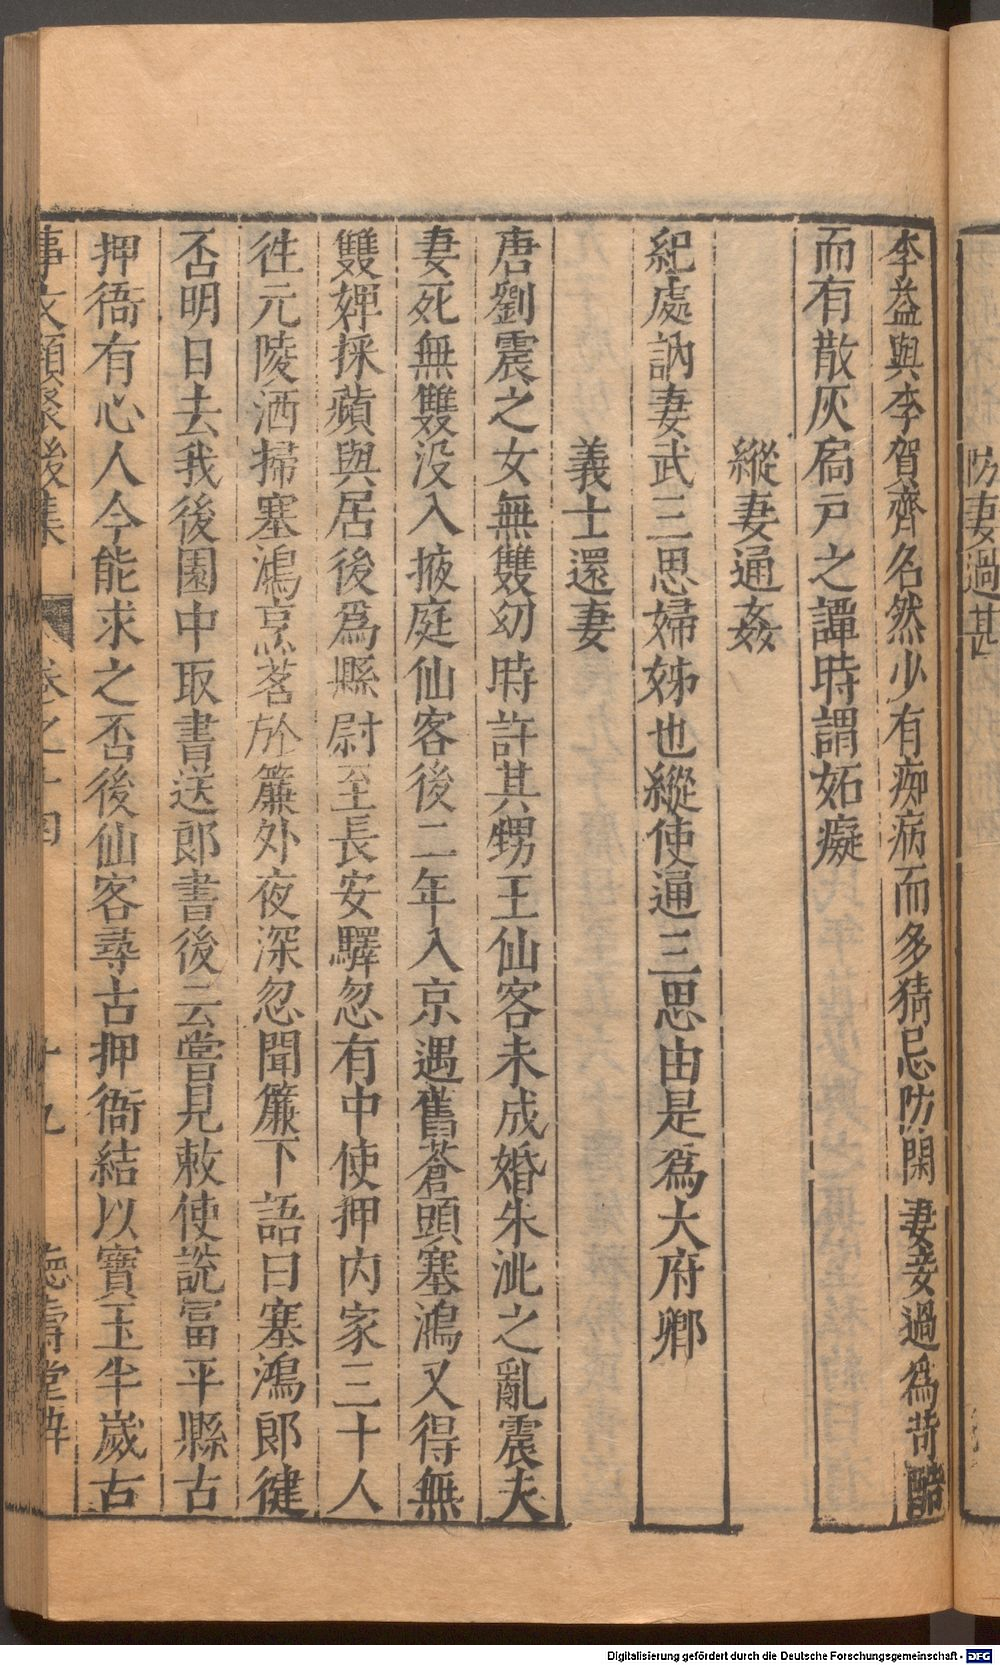 防妻過甚
李益與李賀齊名然少有痴病而多猜忌防閑妻妾過爲苛酷
而有散灰扃戸之譚時謂妬癡
縱妻通姦
紀處訥妻武三思婦姊也縱使通三思由是爲大府卿
義士還妻
唐劉震之女無雙幼時許其甥王仙客未成婚朱泚之亂震夫
妻死無雙没入掖庭仙客後二年入京遇舊蒼頭塞鴻又得無
雙婢採蘋與居後爲縣尉至長安驛忽有中使押内家三十人
徃元陵洒掃塞鴻烹茗於簾外夜深忽聞簾下語曰塞鴻郎健
否明日去我後園中取書送郎書後云嘗見敕使說冨平縣古
押衙有心人今能求之否後仙客尋古押衙結以寶玉半歲古
事文類聚後集 卷之十四 十九 德壽堂梓
Digitalisierung gefördert durch die Deutsche Forschungsgemeinschaft - DFG